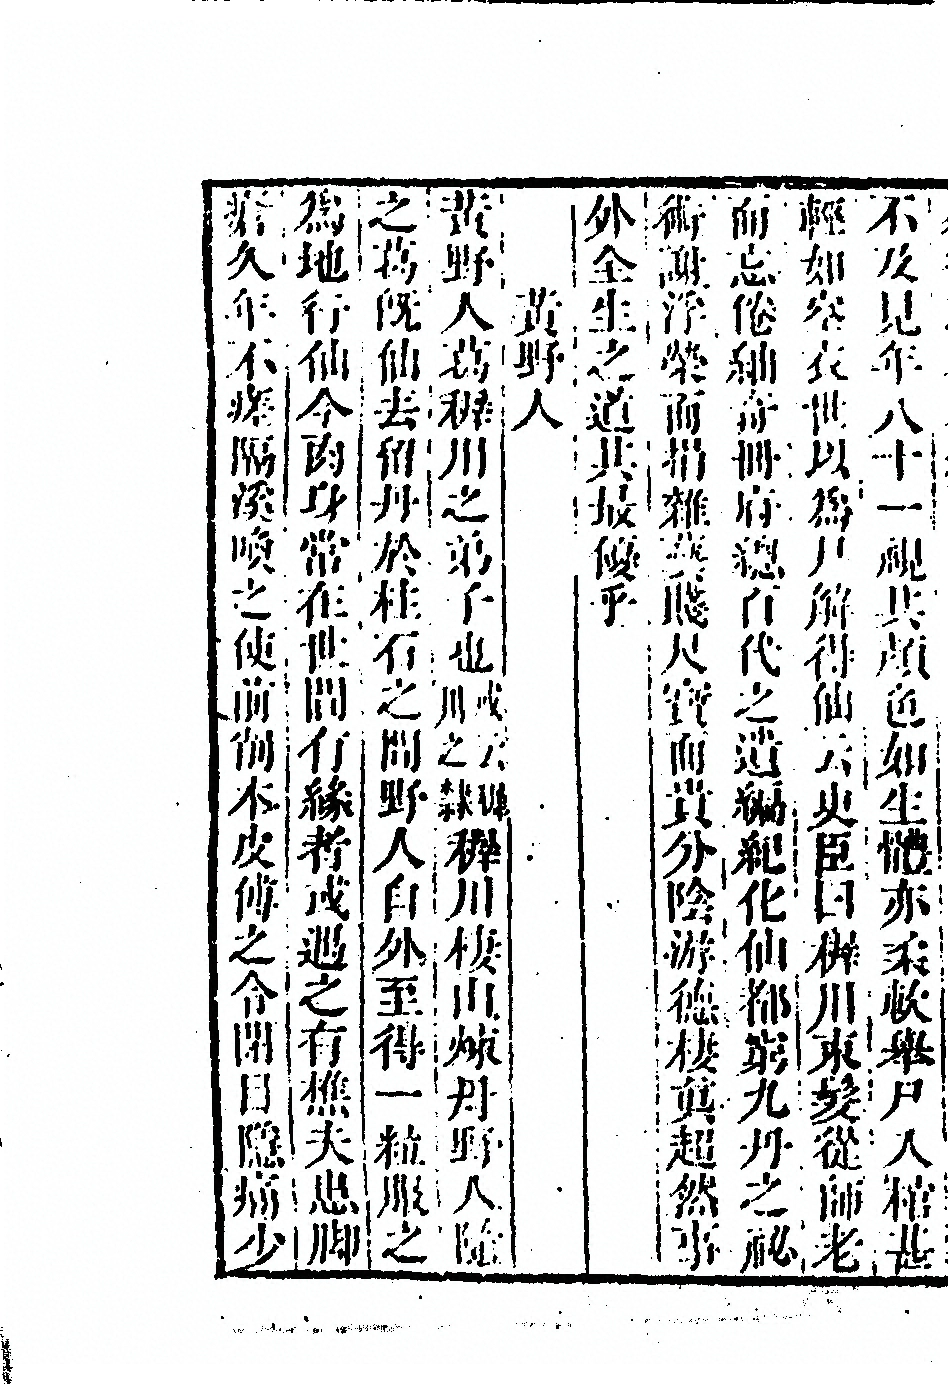 不及見年八十一視其顏色如生體亦柔軟舉尸入棺甚
輕如空衣世以為尸解得仙云史臣曰稚川束髮從師老
而忘倦紬奇冊府總百代之遺編紀化仙都窮九丹之祕
術謝浮榮而捐雜藝賤尺寶而貴分陰游德棲真超然事
外全生之道其最優乎
黃野人
黃野人葛稚川之弟子也或云稚川之隸稚川棲山煉丹野人隨
之葛既仙去留丹於柱石之間野人自外至得一粒服之
為地行仙今肉身常在世間有緣者或遇之有樵夫患脚
瘡久年不瘥隔溪喚之使前削木皮傅之令閉目隱痛少